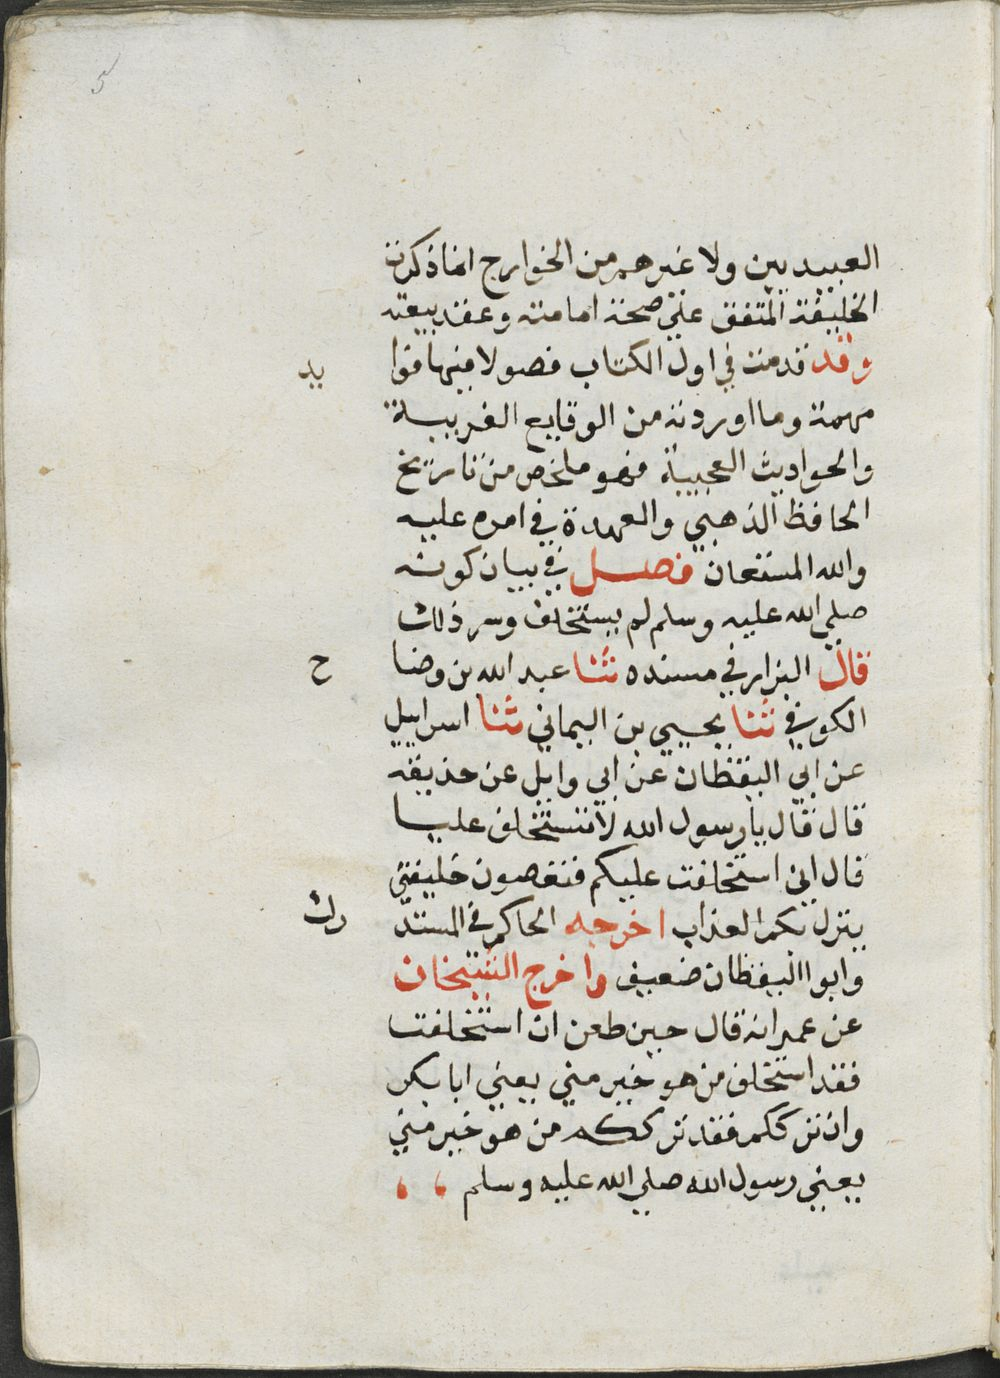 العبيديين ولا غيرهم من الخوارج انما ذكرت
الخليفة المتفق على صحة امامته وعقد بيعته
وقد قدمت في اول الكتاب فصولا فيها فوا
يد
مهمة وما اوردته من الوقايع الغريبة
والحواديث العجيبة فهو ملخص من تاريخ
الحافظ الذهبي والعهدة في امره عليه
والله المستعان فصل في بيان كونه
صلي الله عليه وسلم لم يستخلف وسر ذلك
قال البزار في مسنده ثنا عبد الله بن وضا
ح
الكوفي ثنا يحيي بن اليماني ثنا اسراييل
عن ابي اليقظان عن ابي وايل عن حذيفه
قال قال يا رسول الله لا تستخلف علينا
قال اني استخلفت عليكم فتعصون خليفتي
ينزل بكم العذاب اخرجه الحاكم في المستد
رك
وابوا اليقظان ضعيف واخرج الشيخان
عن عمر انه قال حين طعن ان استخلفت
فقد استخلف من هو خير مني يعني ابا بكر
وان تركتكم فقد ترككم من هو خير مني
يعني رسول الله صلي الله عليه وسلم